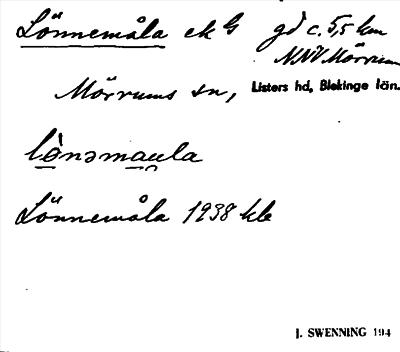 Lönnemåla ek G gd c. 5,5 km
NNV Mörrum
Mörrums sn, Listers hd, Blekinge län.
lònəmau̯la
Lönnemåla 1938 kb
J. SWENNING 194